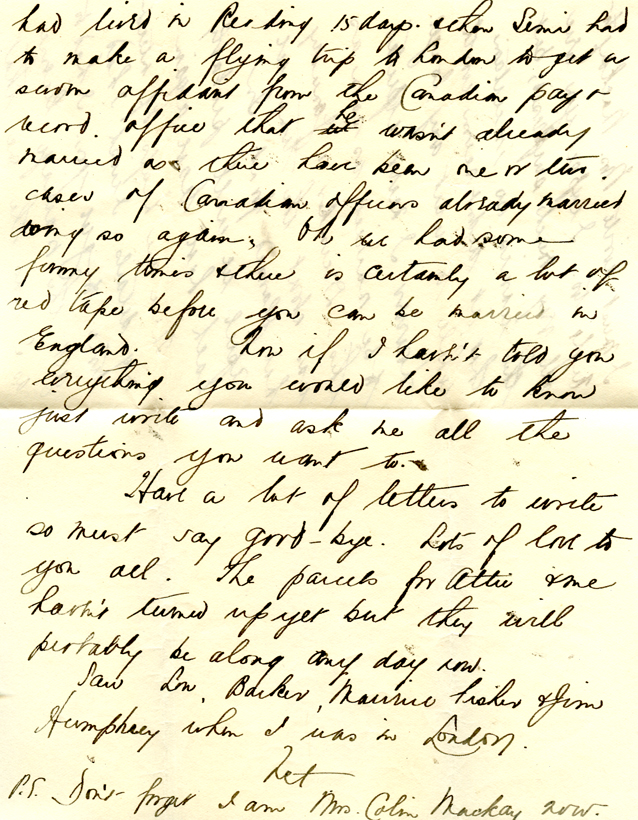 had lived in Reading 15 days. & then Simi had
to make a flying trip to London to get a
sworn affidavit from the Canadian pay &
record. office that he wasn't already
married as there have been one or two.
cases of Canadian officers already married
doing so again. Oh we had some
funny times & there is certainly a lot of
red tape before you can be married in
England. Now if I havn't told you
everything you would like to know
just write and ask me all the
questions you want to.
Have a lot of letters to write
so must say good-bye. Lots of love to
you all. The parcels for Attie & me
havn't turned up yet but they will
probably be along any day now.
Saw Lon, Barker, Maurice Fisher & Jim
Humphrey when I was in London.
Net
P.S. Don't forget I am Mrs. Colin Mackay now.